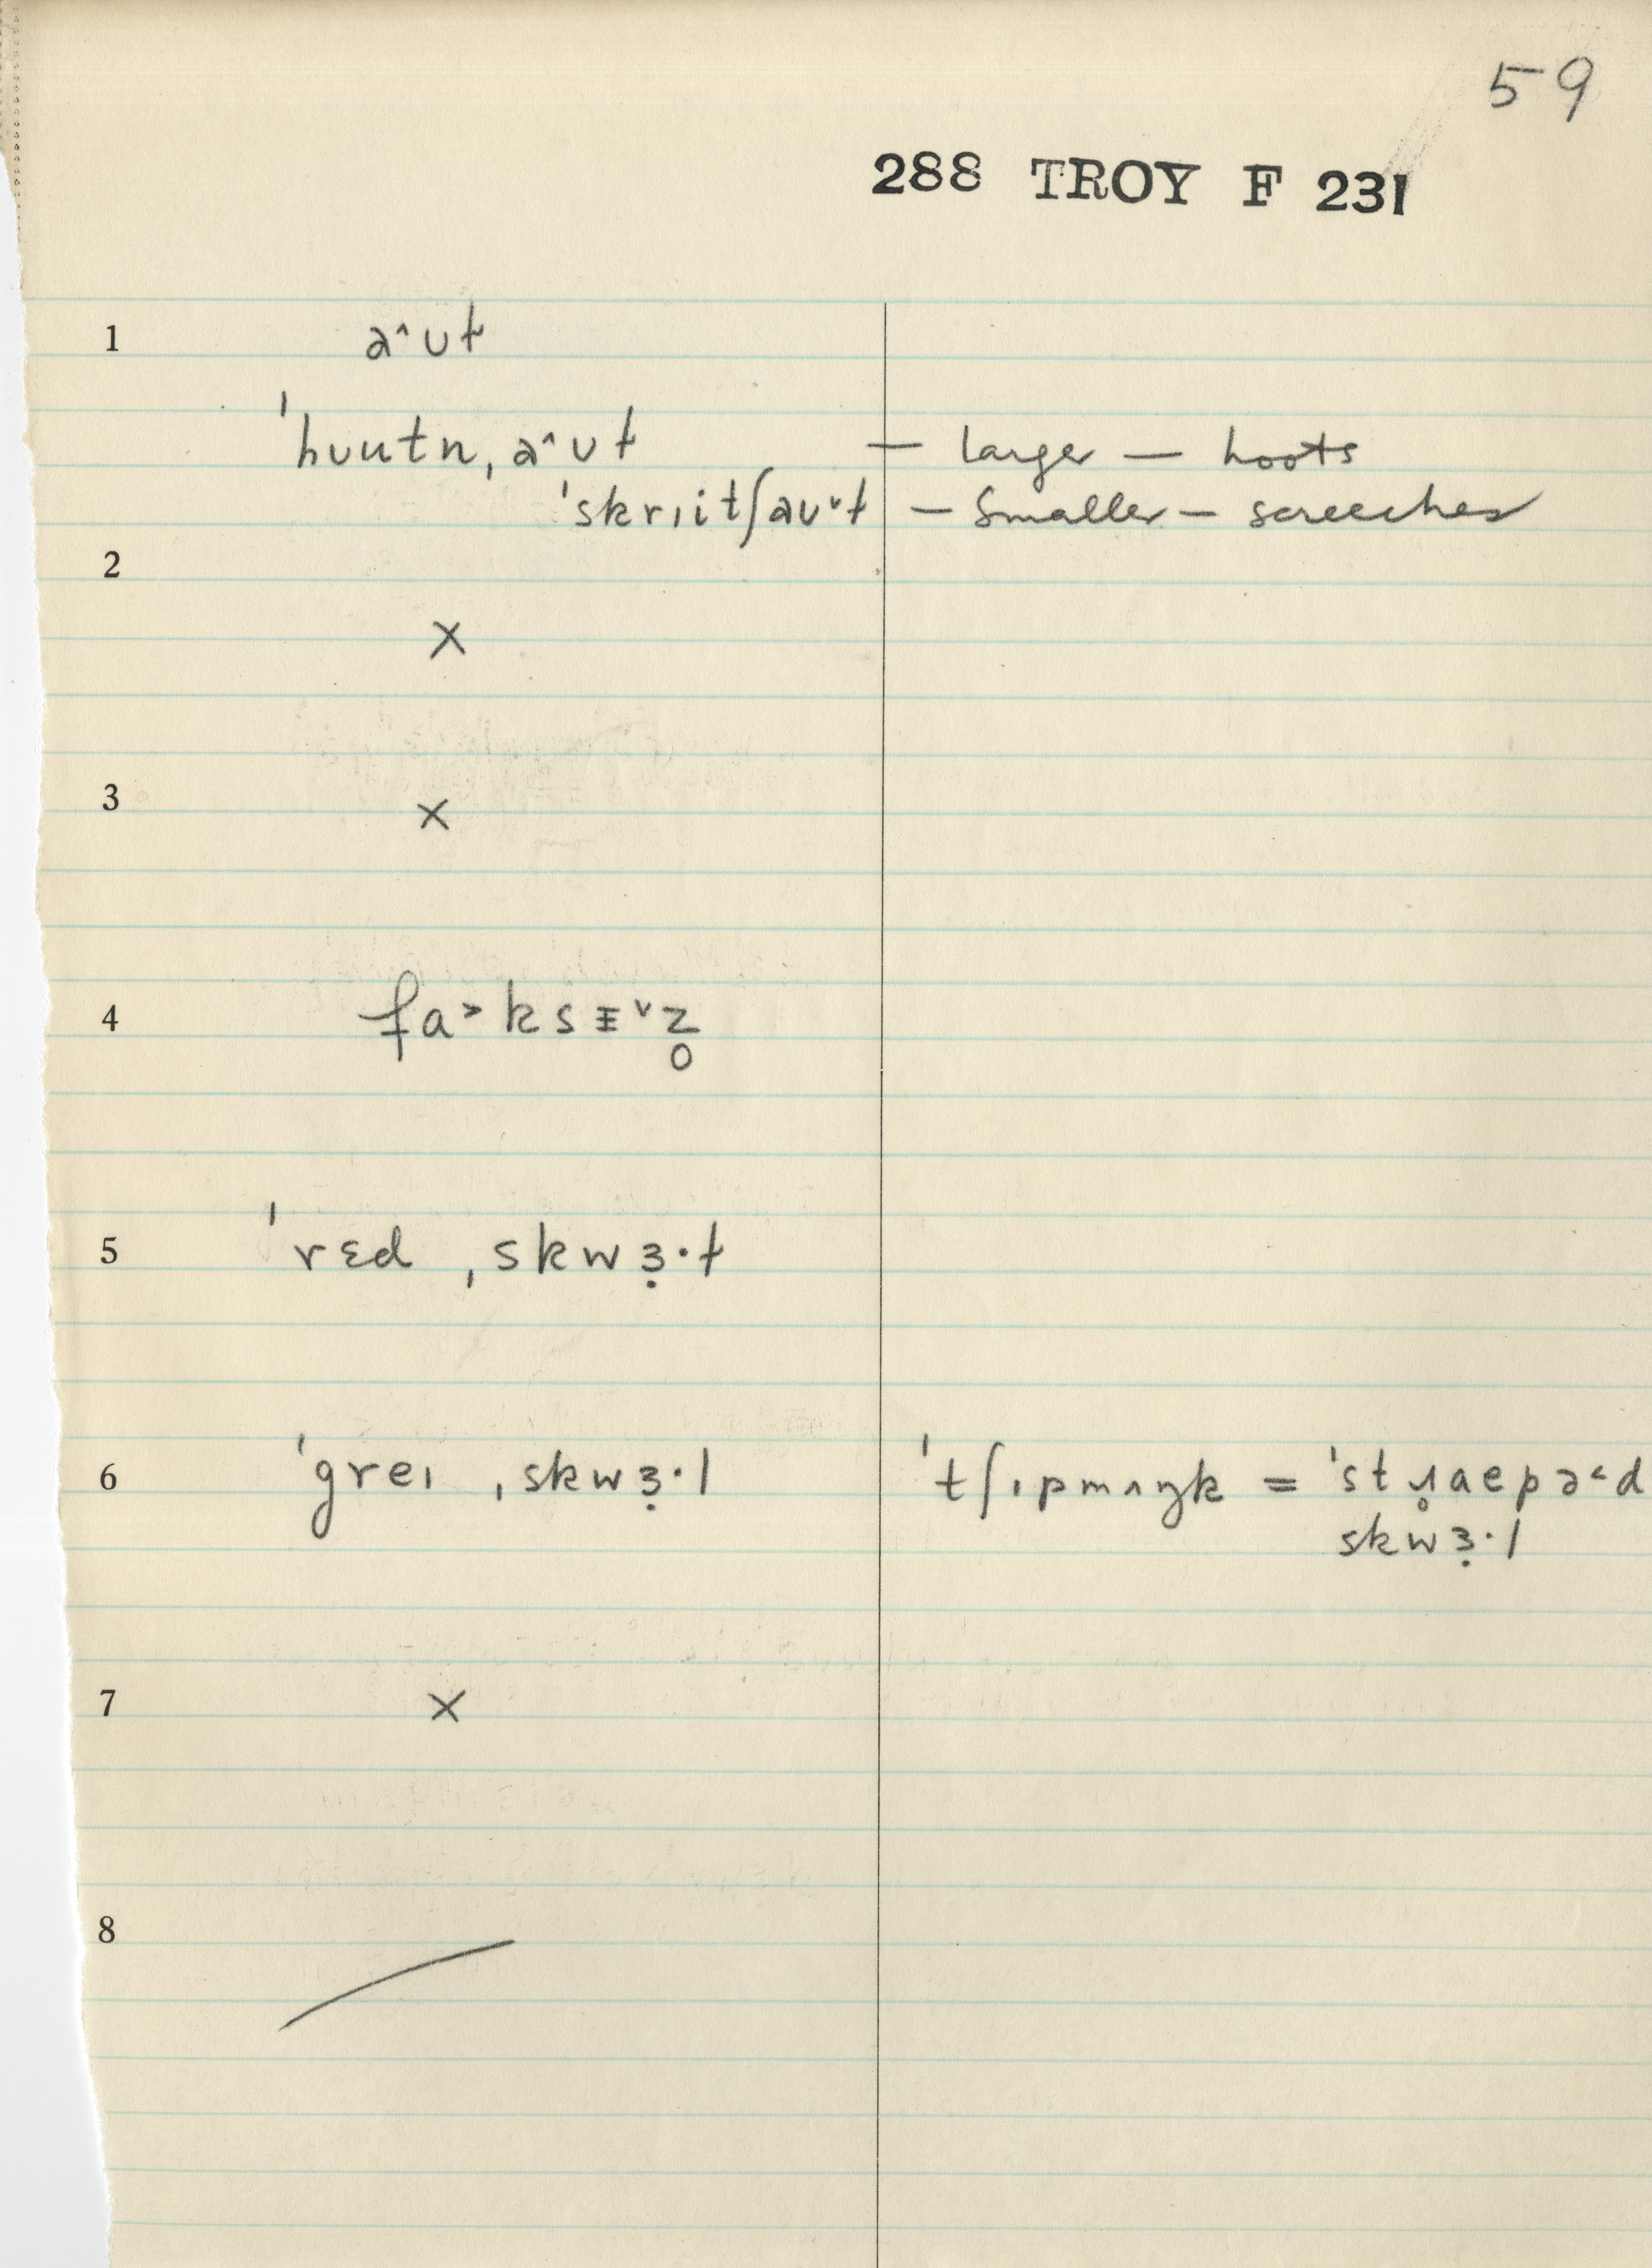 59
288 TROY F 231
1 a^ʊɫ
ˈhʊutn̩ˌa^ʊɫ — larger — hoots
ˈskrɪitʃaʊ˅ɫ — Smaller — screeches
2
×
3 ×
4 fɑ˃ksɪ̵˅z̥
5 ˈrɛd ˌskwɜ̣·ɫ
6 ˈgreɪ ˌskwɜ̣·l ˈtʃɪpmʌŋk = ˈstɹ̥aepə˂d
skwɜ̣·l
7 ×
8